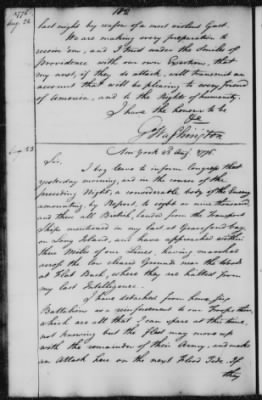 182
1776
Aug. 22
last night by reason of a most violent Gust.
We are making every preparation to
receive 'em, and I trust under the Smiles of
Providence with our own Exertion, that
my next, if they do attack, will transmit an
account that will be pleasing to every friend
of America, and to the Rights of humanity.
I have the honour to be
&c
G Washington
Aug. 23
New York 23 Aug. 1776.
Sir,
I beg leave to inform congress that
yesterday morning, and in the course of the
preceding Night, a considerable body of the Enemy
amounting, by Report, to eight or nine thousand,
and these all British, landed from the Transport
Ships mentioned in my last at Gravesend bay
on Long Island, and have approached within
three Miles of our Lines, having marched
across the low cleared Grounds near the Woods
at Flat Bush, where they are halted from
my last Intelligence.
I have detached from hence, six
Battalions as a reinforcement to our Troops there,
which are all that I can spare at this time,
not knowing but the fleet may move up
with the remainder of their Army, and make
an Attack here on the next Flood Tide. If
they